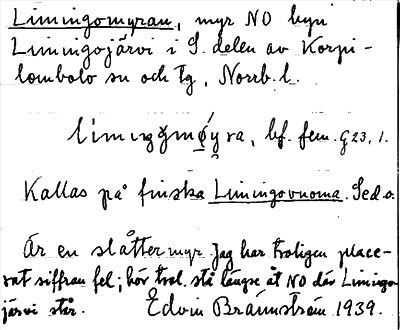 Limingomyran, myr NO byn
Limingojärvi i S. delen av Korpi-
lombolo sn och tg, Norrb. l.
bf. fem. G 23, 1.
Kallas på finska Limingovuoma. Se d.o.
Är en slåttermyr. Jag har troligen place-
rat siffran fel; bör trol. stå längre åt NO där Limingo-
järvi står. Edvin Brännström 1939.